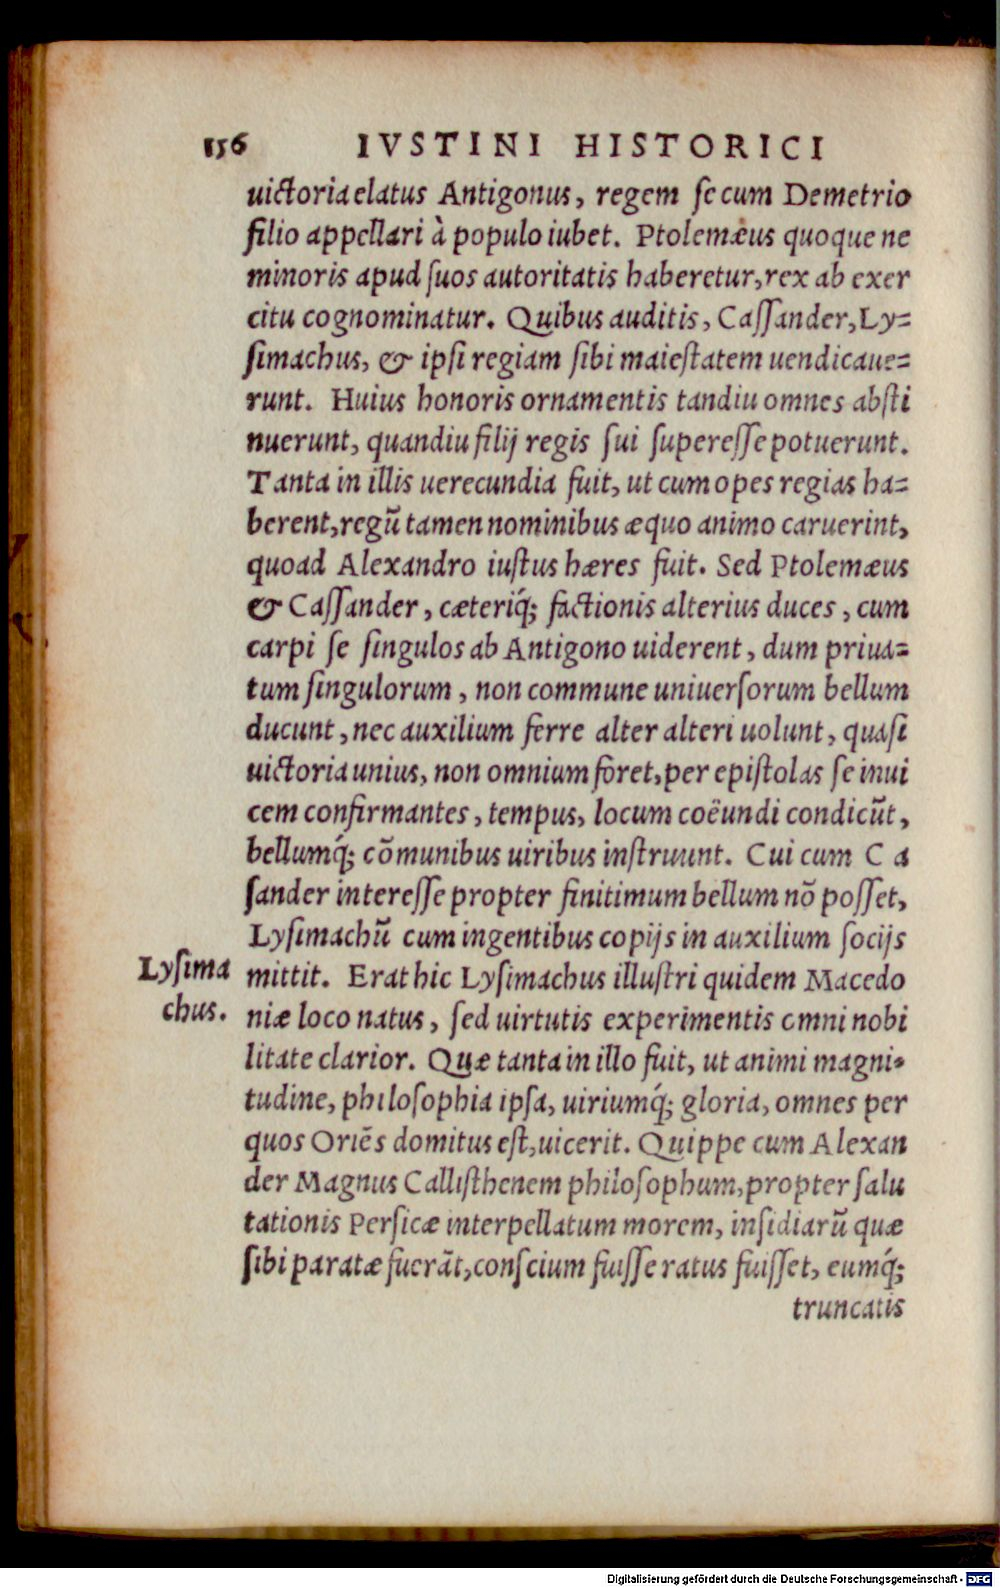 156 IVSTINI HISTORICI
uictoria elatus Antigonus, regem se cum Demetrio
filio appellari à populo iubet. Ptolemæus quoque ne
minoris apud suos autoritatis haberetur, rex ab exer
citu cognominatur. Quibus auditis, Cassander, Ly-
simachus, & ipsi regiam sibi maiestatem uendicaue-
runt. Huius honoris ornamentis tandiu omnes absti
nuerunt, quandiu filij regis sui superesse potuerunt.
Tanta in illis uerecundia fuit, ut cum opes regias ha-
berent, regũ tamen nominibus æquo animo caruerint,
quoad Alexandro iustus hæres fuit. Sed Ptolemæus
& Cassander, cæteriq́; factionis alterius duces, cum
carpi se singulos ab Antigono uiderent, dum priua-
tum singulorum, non commune uniuersorum bellum
ducunt, nec auxilium ferre alter alteri uolunt, quasi
uictoria unius, non omnium foret, per epistolas se inui
cem confirmantes, tempus, locum coëundi condicũt,
bellumq́; cõmunibus uiribus instruunt. Cui cum C a
sander interesse propter finitimum bellum nõ posset,
Lysimachũ cum ingentibus copijs in auxilium socijs
mittit. Erat hic Lysimachus illustri quidem Macedo
niæ loco natus, sed uirtutis experimentis omni nobi
litate clarior. Quæ tanta in illo fuit, ut animi magni-
tudine, philosophia ipsa, uiriumq́; gloria, omnes per
quos Oriẽs domitus est, uicerit. Quippe cum Alexan
der Magnus Callisthenem philosophum, propter salu
tationis Persicæ interpellatum morem, insidiarũ quæ
sibi paratæ fuerãt, conscium fuisse ratus fuisset, eumq́;
truncatis
Lysima
chus.
Digitalisierung gefördert durch die Deutsche Forschungsgemeinschaft - DFG